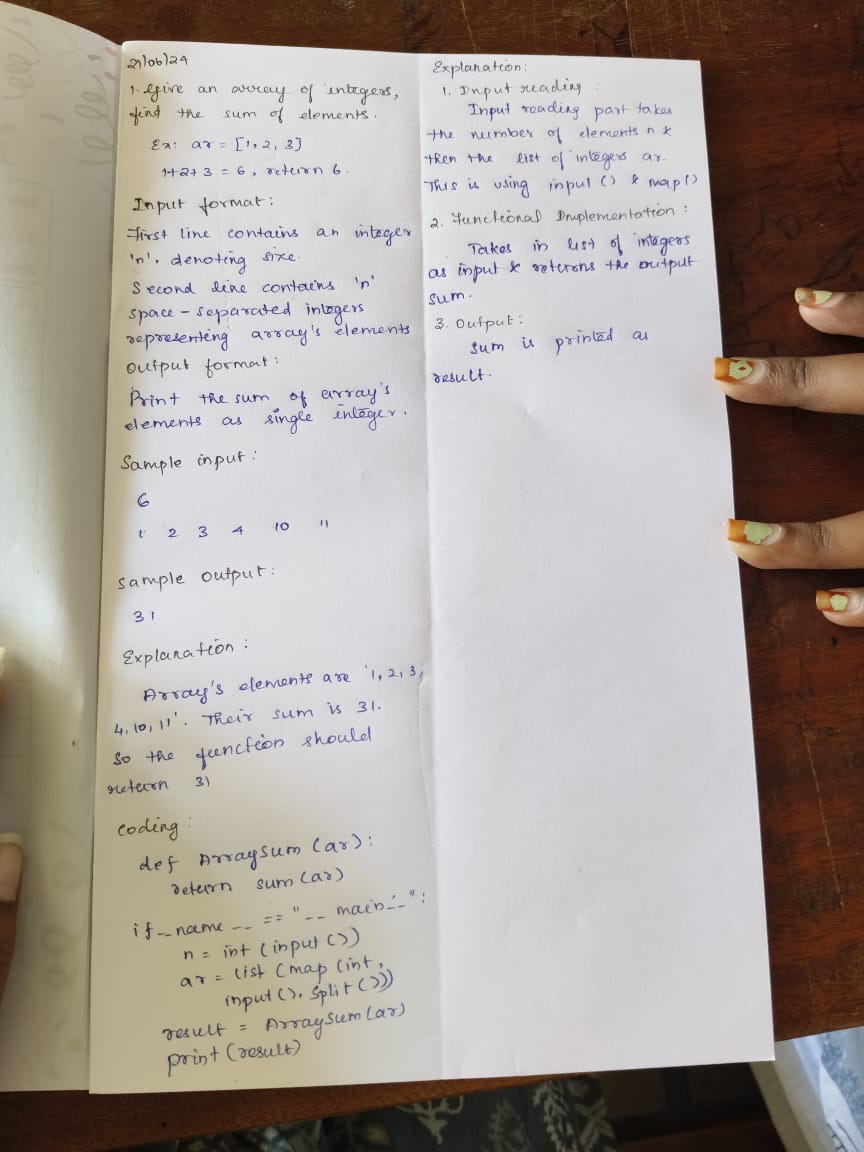 21/06/24
1. Give an array of integers,
find the sum of elements.
Ex: ar = [1, 2, 3]
1+2+3 = 6, return 6.
Input format:
First line contains an integer
'n', denoting size.
Second line contains 'n'
space - separated integers
representing array's elements
Output format:
Print the sum of array's
elements as single integer.
Sample input:
6
1 2 3 4 10 11
Sample output:
31
Explanation:
Array's elements are '1, 2, 3,
4, 10, 11'. Their sum is 31.
So the function should
return 31
coding:
def Arraysum (ar):
return sum (ar)
if _ name __ == "__ main__":
n = int (input ())
ar = list (map (int,
input (). split ()))
result = Arraysum (ar)
print (result)
Explanation:
1. Input reading
Input reading part takes
the number of elements n &
then the list of integers ar.
This is using input () & map ()
2. Functional Implementation:
Takes in list of integers
as input & returns the output
sum.
3. Output:
Sum is printed as
result.